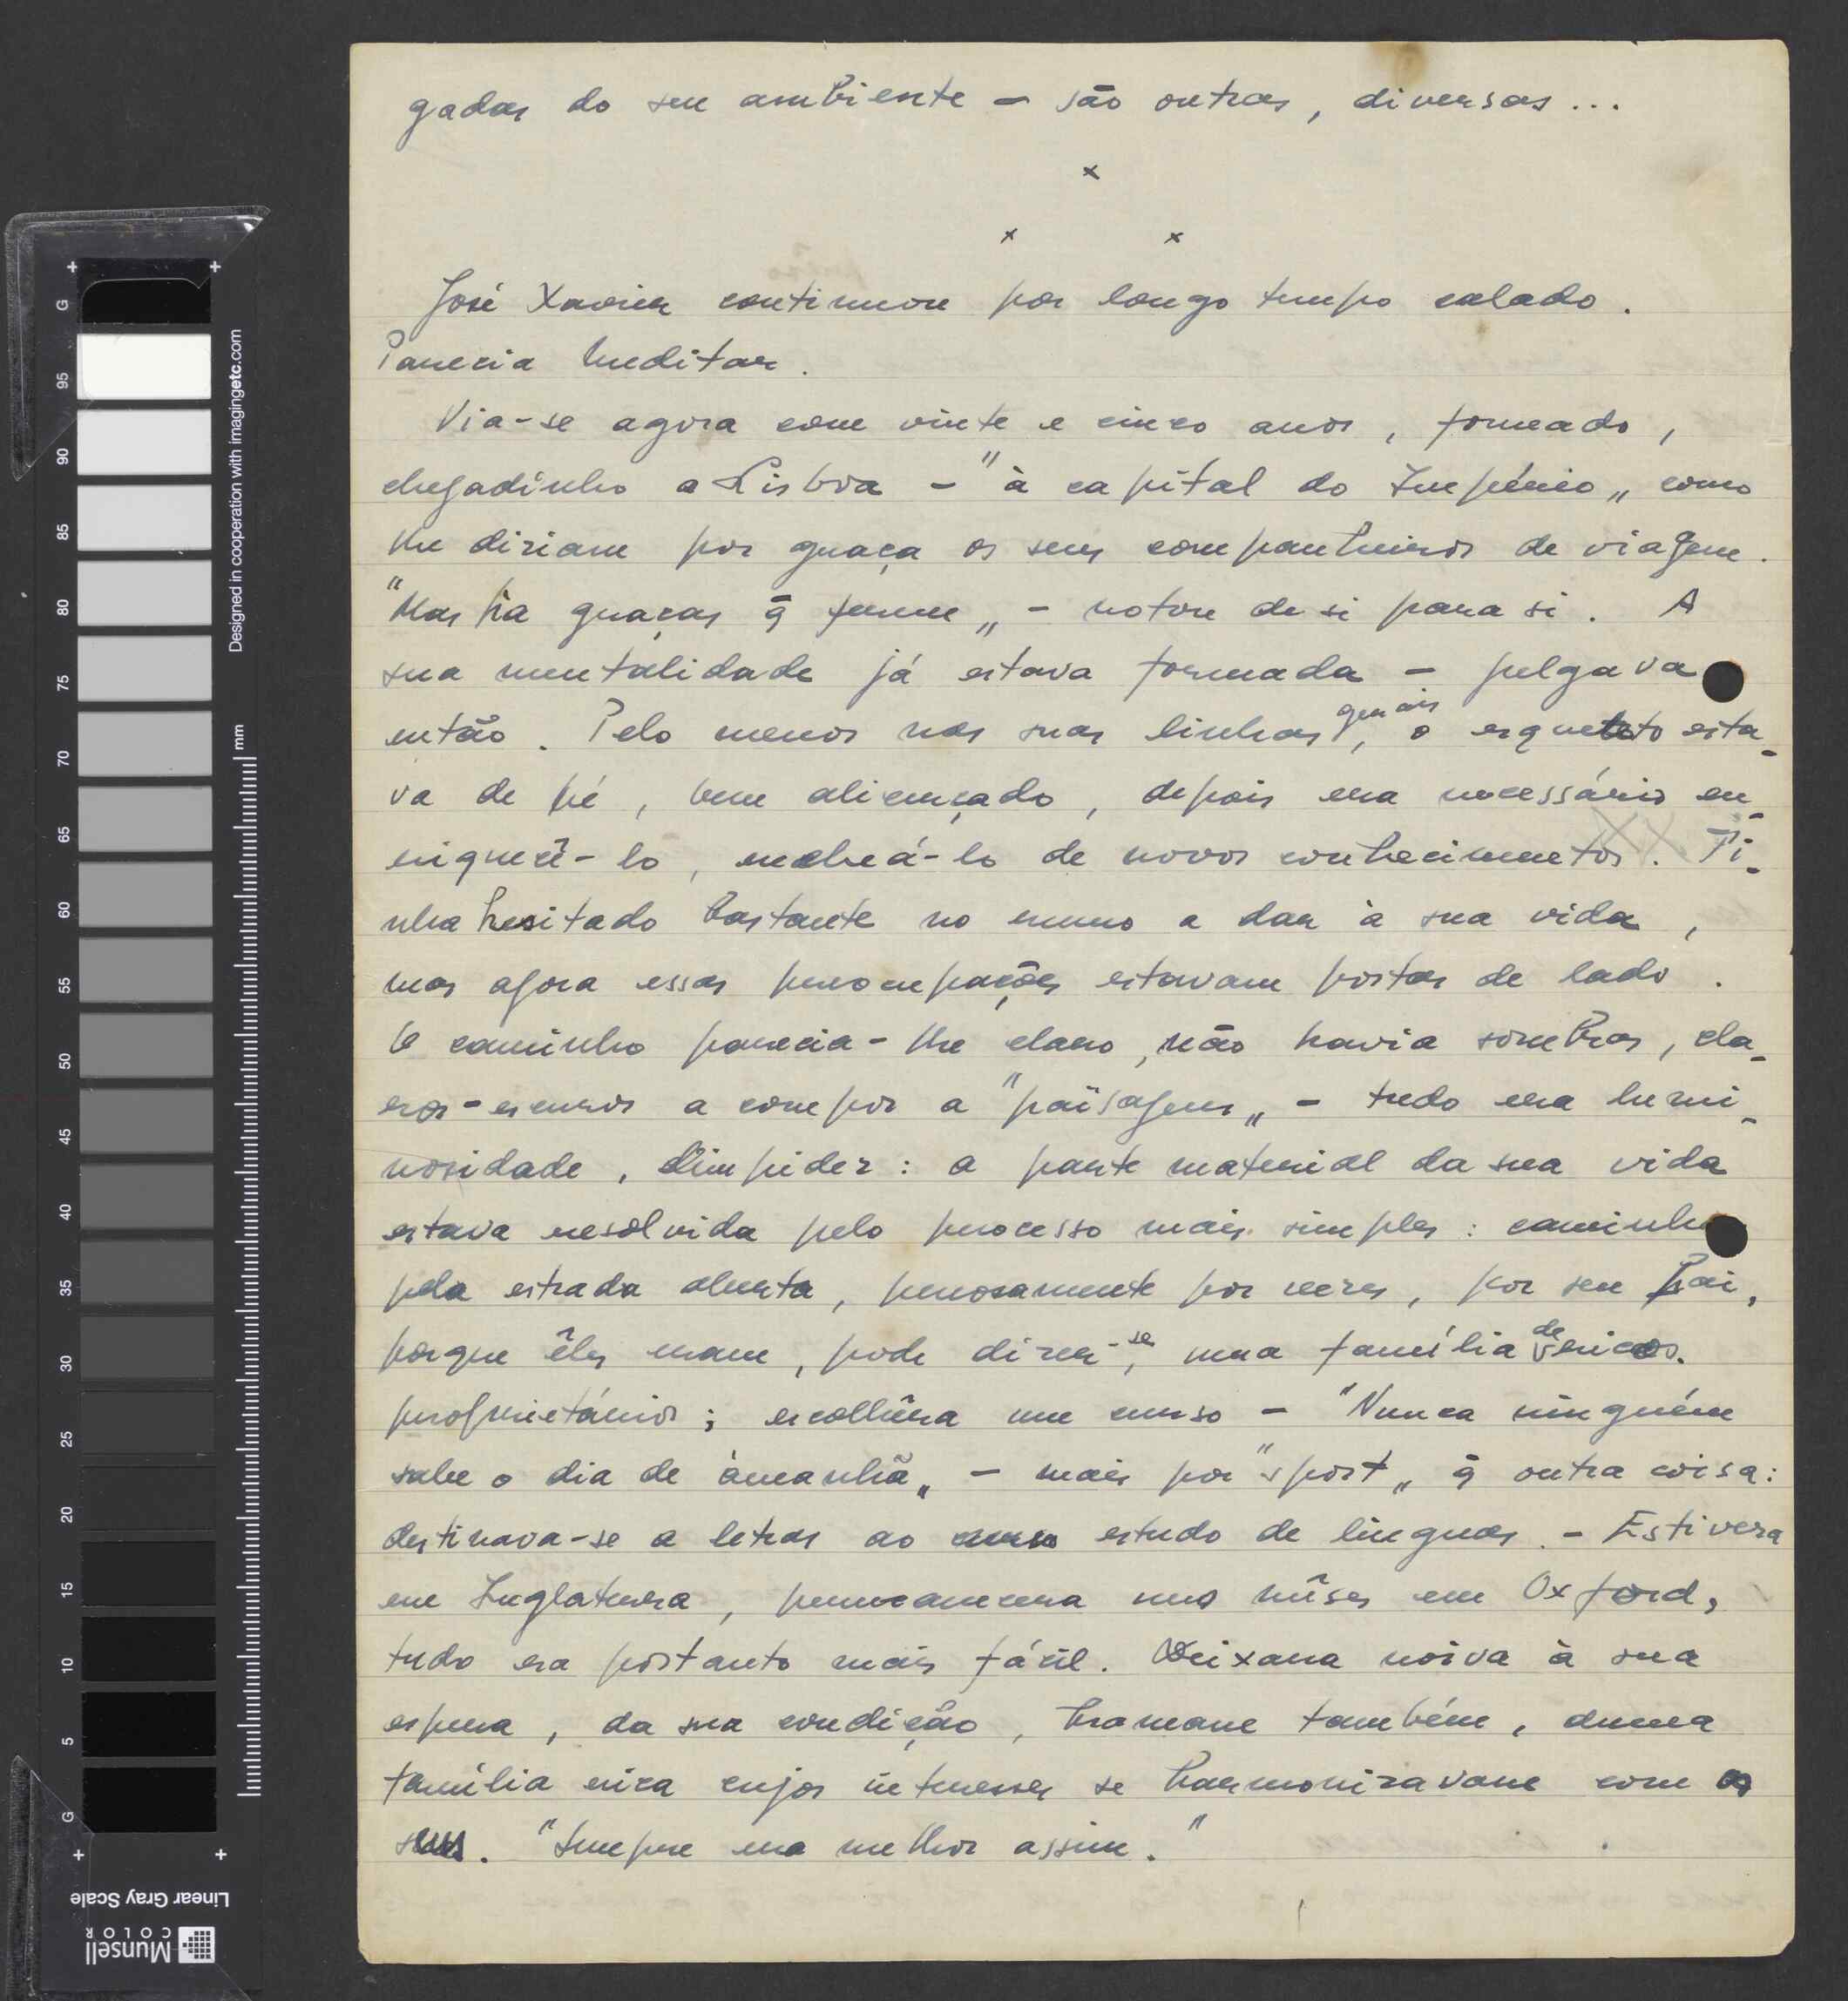 gadas do seu ambiente – são outras, diversas...
x
x x
José Xavier continuou por longo tempo calado.
Parecia meditar.
Via-se agora com vinte e cinco anos, formado,
chegadinho a Lisboa – "à capital do Império" como
lhe diziam por graça os seus companheiros de viagem.
"Mas há graças q̃ ferem" – notou de si para si. A
sua mentalidade já estava formada – julgava
então. Pelo menos nas suas linhas gerais, o esqueleto esta-
va de pé, bem alicerçado, depois era necessário en-
riquecê-lo, recheá-lo de novos conhecimentos. Ti-
nha hesitado bastante no rumo a dar à sua vida,
mas agora essas preocupações estavam postas de lado.
O caminho parecia-lhe claro, não havia sombras, cla-
ros-escuros a compor a "païsagem" – tudo era lumi-
nosidade, limpidez: a parte material da sua vida
estava resolvida pelo processo mais simples: caminho
pela estrada aberta, penosamente por vezes, por seu Pai,
porque êles eram, pode dizer-se, uma família de ricos
proprietários; escolhêra um curso – "Nunca ninguém
sabe o dia de àmanhã" – mais por "sport" q̃ outra coisa:
destinava-se a letras ao curso estudo de línguas. – Estivera
em Inglaterra, permanecera uns mêses em Oxford,
tudo era portanto mais fácil. Deixara noiva à sua
espera, da sua condição, tramam também, duma
família rica cujos interesses se harmonizavam com os
seus. "Sempre era melhor assim."
Designed in cooperation with imagingetc.com
mm
G 95 90 85 80 75 70 65 60 55 50 45 40 35 30 25 20 15 10 5 G
Linear Gray Scale
Munsell
COLOR